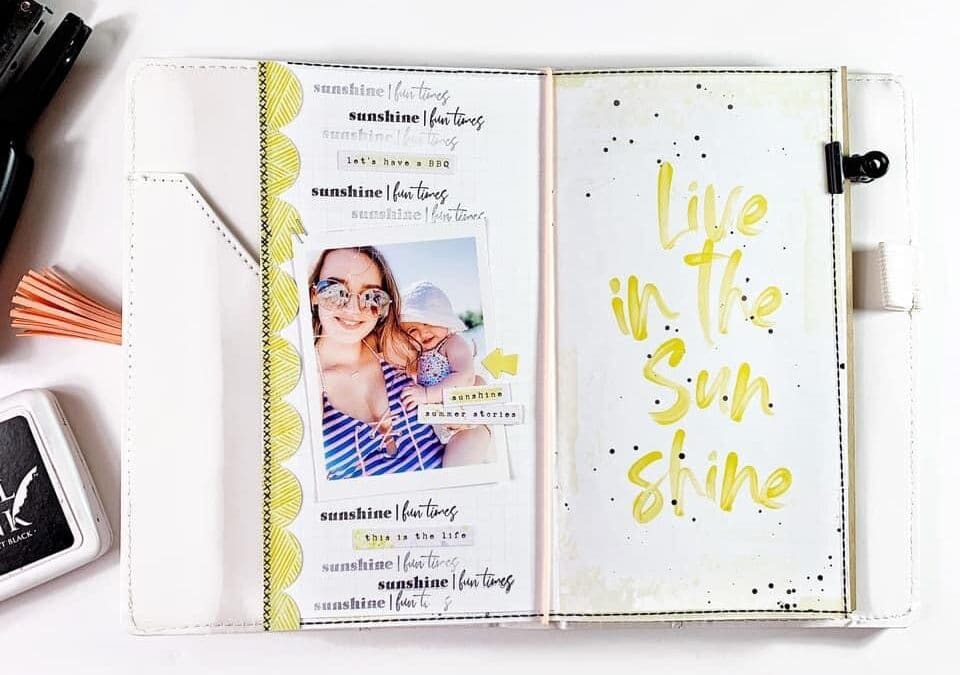 sunshine | fun times
sunshine | fun times
sunshine | fun times
let's have a BBQ
sunshine | fun times
sunshine | fun times
sunshine
summer stories
sunshine | fun times
this is the life
sunshine | fun times
sunshine | fun times
sunshine | fun ti s
Live
in the
Sun
shine
BLACK